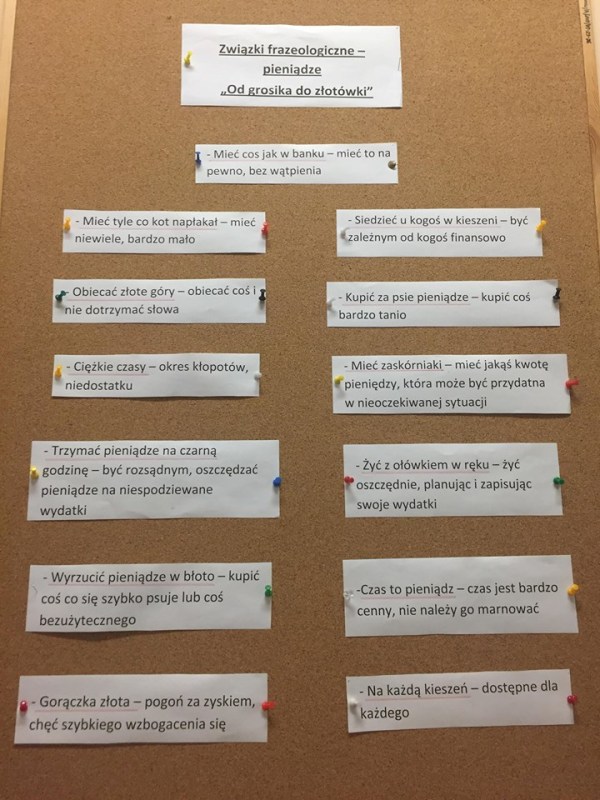 Związki frazeologiczne –
pieniądze
„Od grosika do złotówki”
- Mieć cos jak w banku – mieć to na
pewno, bez wątpienia
- Mieć tyle co kot napłakał – mieć
niewiele, bardzo mało
- Siedzieć u kogoś w kieszeni – być
zależnym od kogoś finansowo
- Obiecać złote góry – obiecać coś i
nie dotrzymać słowa
- Kupić za psie pieniądze – kupić coś
bardzo tanio
- Ciężkie czasy – okres kłopotów,
niedostatku
- Mieć zaskórniaki – mieć jakąś kwotę
pieniędzy, która może być przydatna
w nieoczekiwanej sytuacji
- Trzymać pieniądze na czarną
godzinę – być rozsądnym, oszczędzać
pieniądze na niespodziewane
wydatki
- Żyć z ołówkiem w ręku – żyć
oszczędnie, planując i zapisując
swoje wydatki
- Wyrzucić pieniądze w błoto – kupić
coś co się szybko psuje lub coś
bezużytecznego
-Czas to pieniądz – czas jest bardzo
cenny, nie należy go marnować
- Gorączka złota – pogoń za zyskiem,
chęć szybkiego wzbogacenia się
- Na każdą kieszeń – dostępne dla
każdego